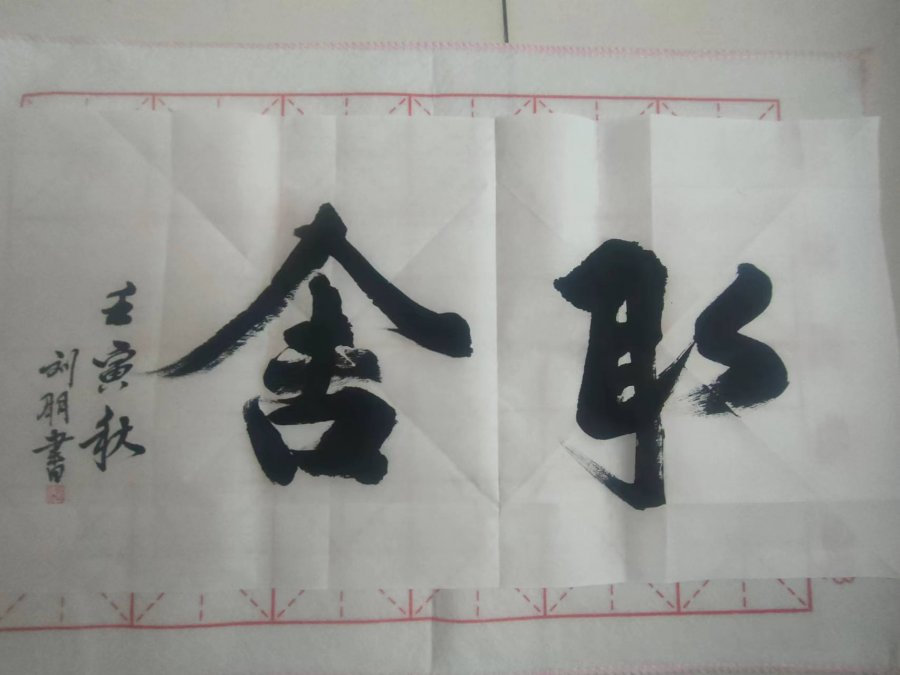 取舍
壬寅秋
刘朋書